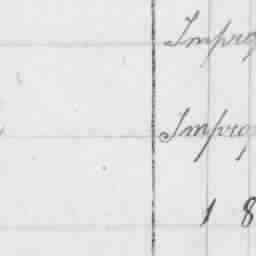 Improp
Improp
1 8